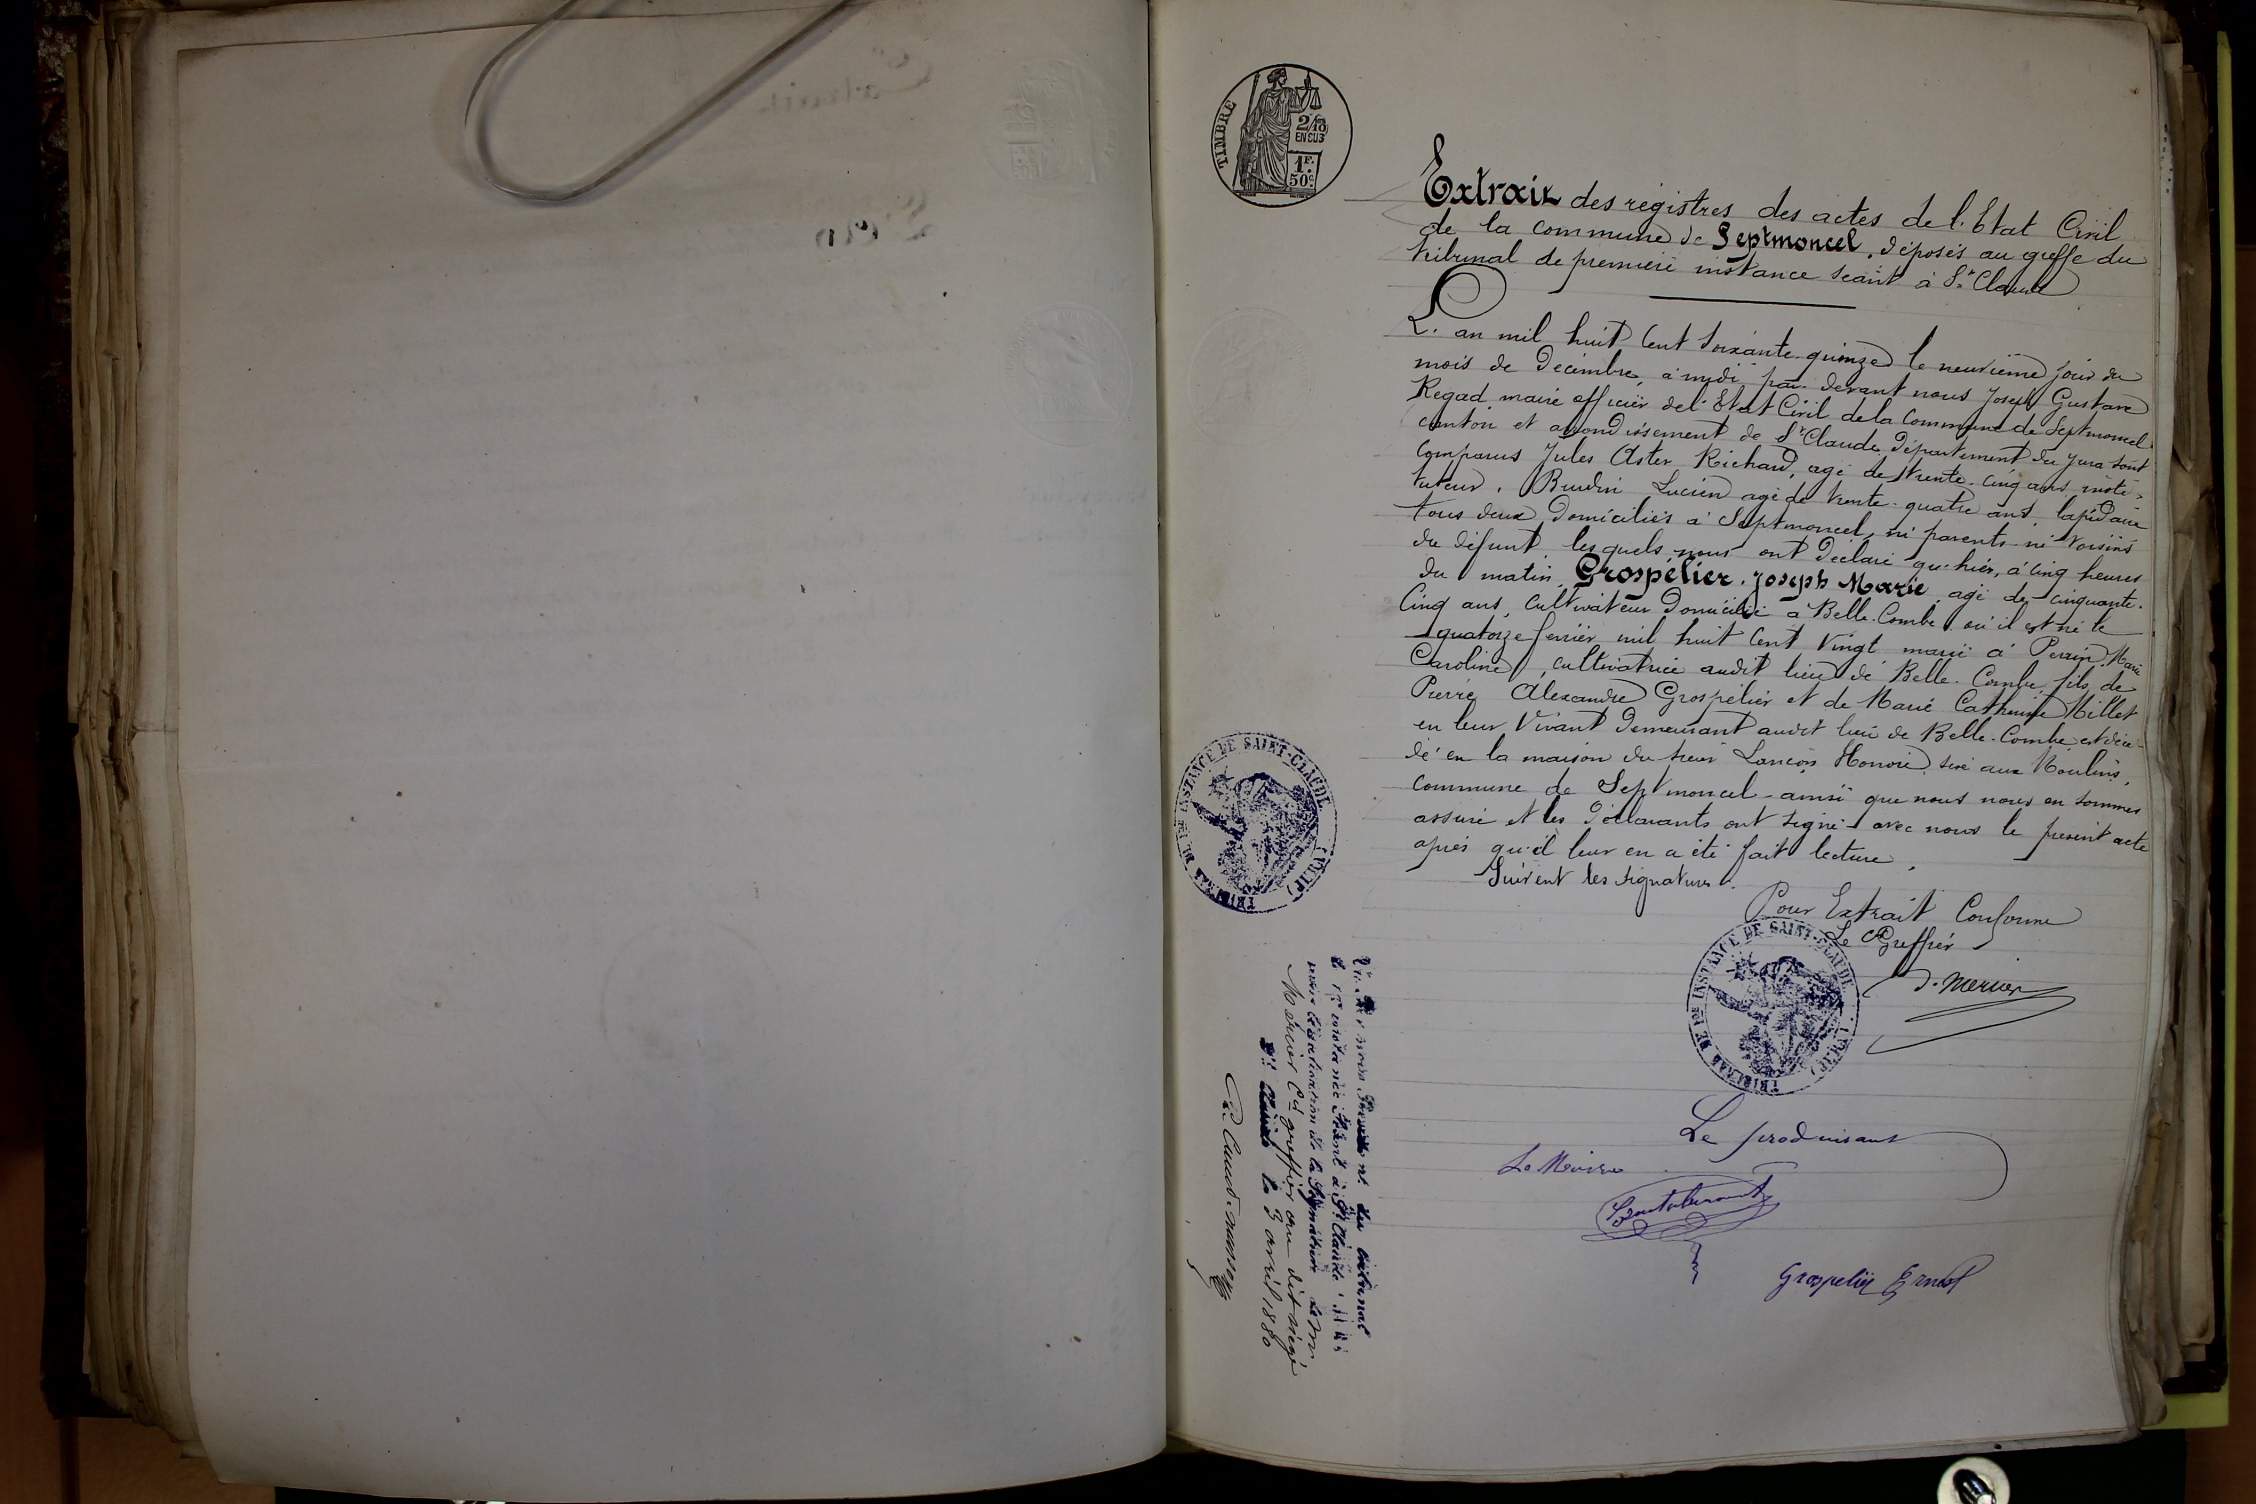 TIMBRE
2/10
EN SUS
1F.
50c.
Extrait des registres des actes de l'Etat Civil
de la commune de Septmoncel, déposés au greffe du
tribunal de première instance séant à St Claude
L'an mil huit Cent soixante-quinze le neuvième jour du
mois de Décembre, à midi par devant nous Joseph Gustave
Regad maire officier de l'Etat Civil de la Commune de Septmoncel
canton et arrondissement de St Claude, Département du Jura sont
comparus Jules Aster Richard, agé de trente-cinq ans, insti-
tuteur, Burdin Lucien agé de trente-quatre ans, lapidaire
tous deux Domiciliés à Septmoncel, ni parents ni voisins
du défunt, lesquels nous ont Déclaré qu'hier, à cinq heures
du matin, Grospélier Joseph Marie, agé de cinquante-
Cinq ans, Cultivateur Domicilié à Belle-Combe où il est né le
quatorze février mil huit Cent vingt marié à Perrin Marie
Caroline, cultivatrice audit lieu de Belle-Combe, fils de
Pierre Alexandre Grospélier et de Marie Catherine Millet
en leur Vivant Demeurant audit lieu de Belle-Combe, est décé-
dé en la maison du sieur Lançon Honoré, sise aux Moulins,
commune de Septmoncel ainsi que nous nous en sommes
assuré et les Déclarants ont signé avec nous le présent acte
après qu'il leur en a été fait lecture.
Suivent les signatures.
Pour Extrait Conforme
Le Greffier
J. Mercier
TRIBUNAL DE 1re INSTANCE DE SAINT-CLAUDE (JURA)
TRIBUNAL DE 1re INSTANCE DE SAINT-CLAUDE (JURA)
du tribunal
de 1re instance séant à St Claude
pour légalisation de la Signature de M
Mercier Cis greffier au dit siège
St Claude le 3 avril 1880
Le produisant
Le Maire
Grospelier Ernest